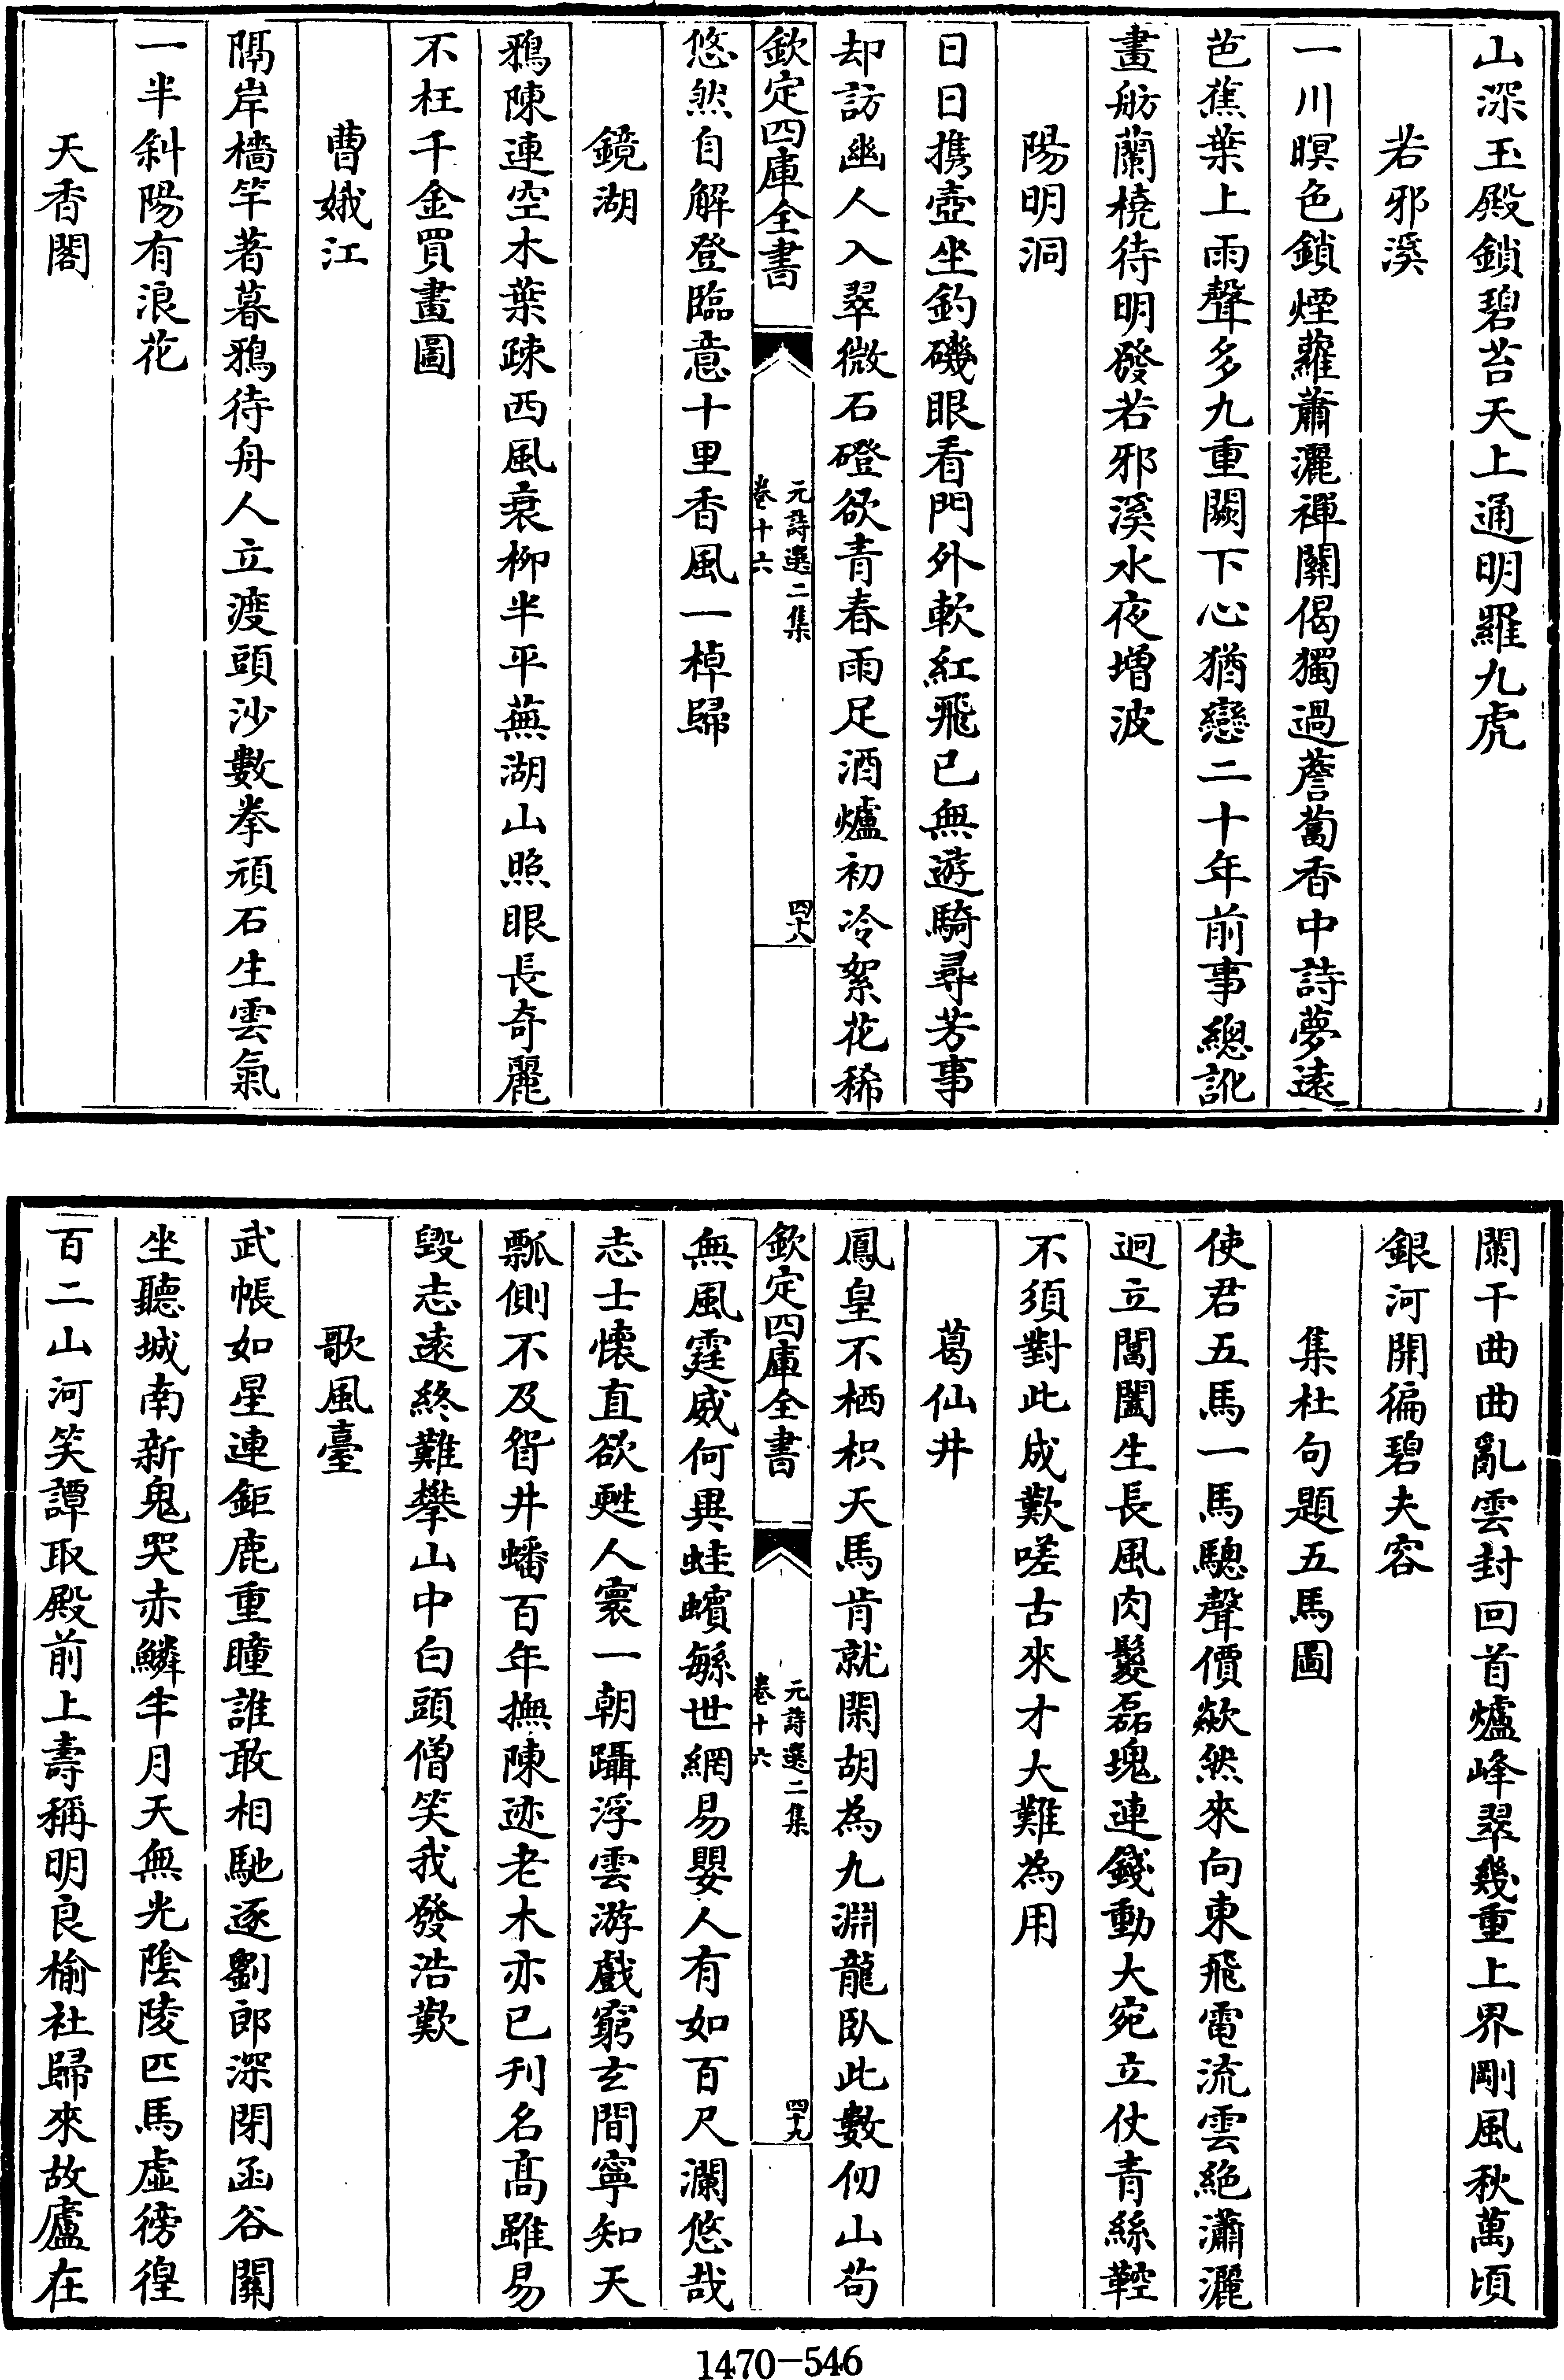 山深玉殿鎖碧苔天上通明羅九虎
若邪溪
一川暝色鎖煙蘿蕭灑禪關偈獨過薝蔔香中詩夢遠
芭蕉葉上雨聲多九重闕下心猶戀二十年前事總訛
畫舫蘭橈待明發若邪溪水夜增波
陽明洞
日日攜壺坐釣磯眼看門外軟紅飛已無遊騎尋芳事
却訪幽人入翠微石磴欲青春雨足酒爐初冷絮花稀
欽定四庫全書
元詩選二集
卷十六
四十八
悠然自解登臨意十里香風一棹歸
鏡湖
鴉陳連空木葉疎西風衰柳半平蕪湖山照眼長奇麗
不枉千金買畫圖
曹娥江
隔岸檣竿著暮鴉待舟人立渡頭沙數拳頑石生雲氣
一半斜陽有浪花
天香閣
闌干曲曲亂雲封回首爐峰翠幾重上界剛風秋萬頃
銀河開徧碧夫容
集杜句題五馬圖
使君五馬一馬驄聲價歘然來向東飛電流雲絶瀟灑
迥立閶闔生長風肉鬉磊塊連錢動大宛立仗青絲鞚
不須對此成歎嗟古來才大難為用
葛仙井
鳳皇不栖枳天馬肯就閑胡為九淵龍臥此數仞山苟
欽定四庫全書
元詩選二集
卷十六
四十九
無風霆威何異蛙蠙緐世網易嬰人有如百尺瀾悠哉
志士懷直欲甦人寰一朝躡浮雲游戲窮玄間寧知天
瓢側不及眢井蟠百年撫陳迹老木亦已刋名髙雖易
毀志遠終難攀山中白頭僧笑我發浩歎
歌風臺
武帳如星連鉅鹿重瞳誰敢相馳逐劉郎深閉函谷關
坐聽城南新鬼哭赤鱗半月天無光陰陵匹馬虚徬徨
百二山河笑譚取殿前上壽稱明良榆社歸來故廬在
1470-546